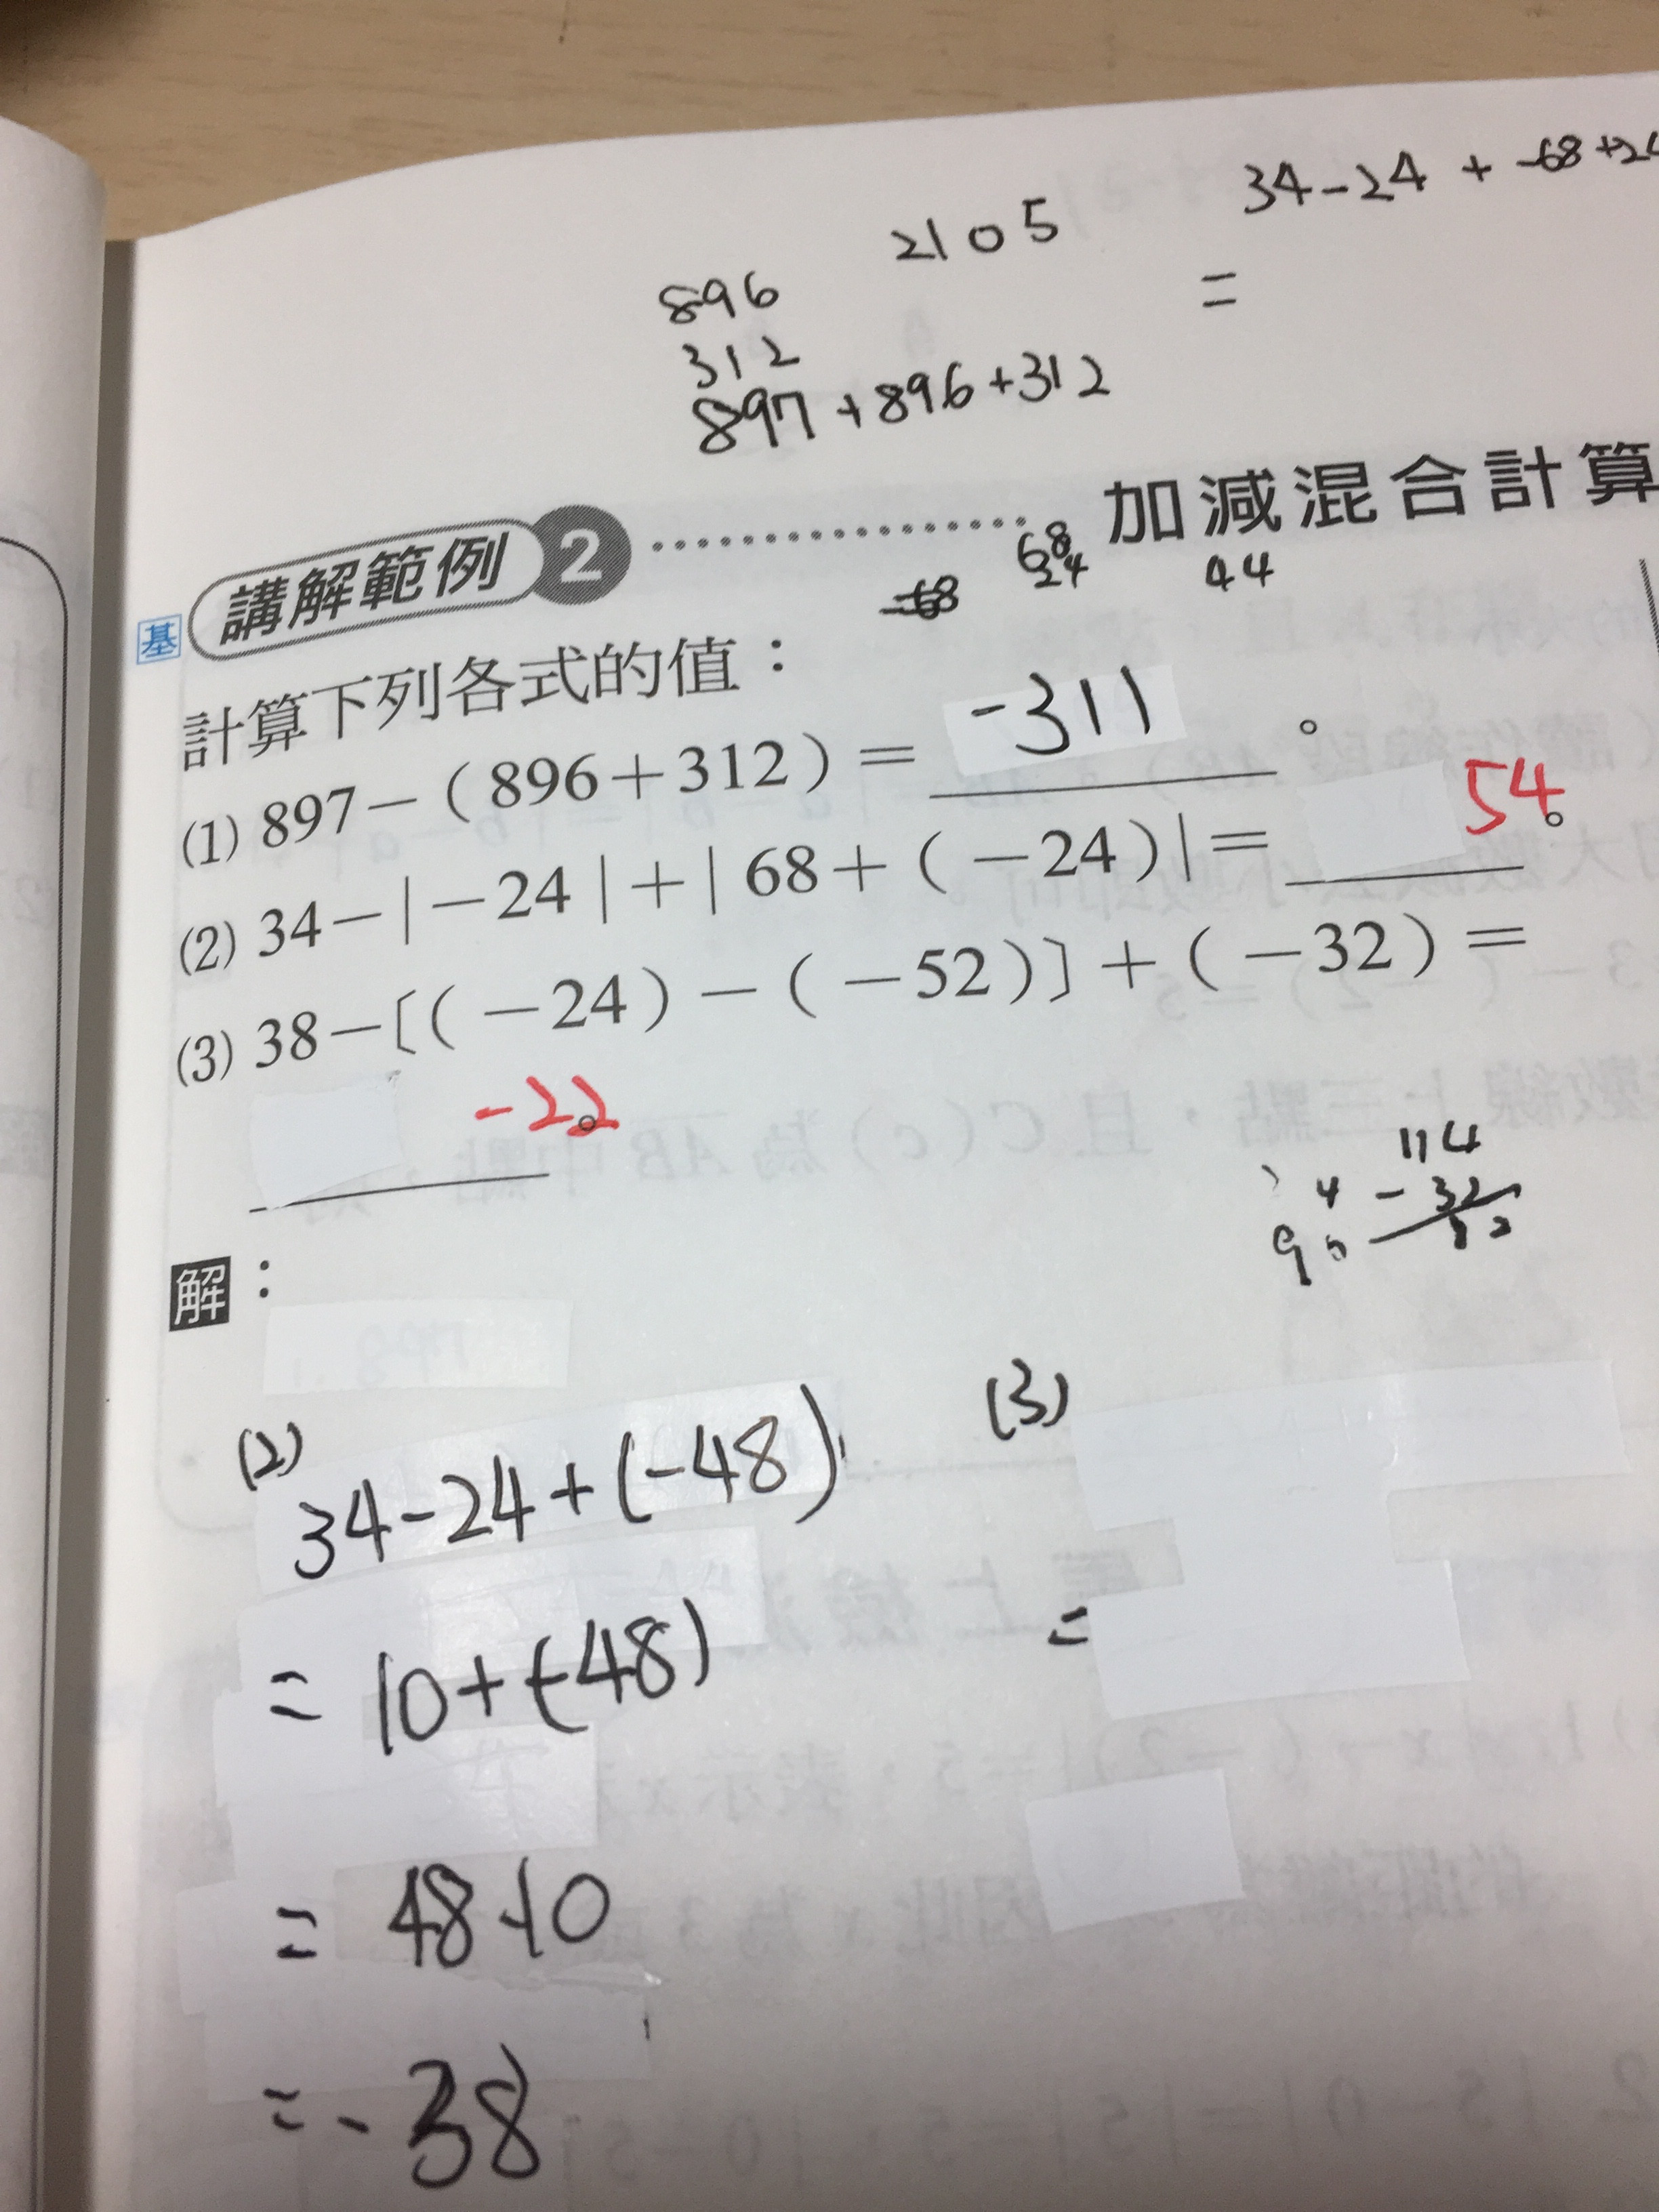 34-24 + -68+24
=
2105
896
312
897+896+312
講解範例 2 加減混合計算
68
24
44
-68
基
計算下列各式的值：
(1) 897－（896＋312）＝ -311 。
(2) 34－|－24|＋|68＋（－24）|＝ 54。
(3) 38－〔（－24）－（－52）〕＋（－32）＝
-22。
114
- 32
解：
(2)
34-24+(-48)
= 10+(-48)
= 48-10
= -38
(3)
=